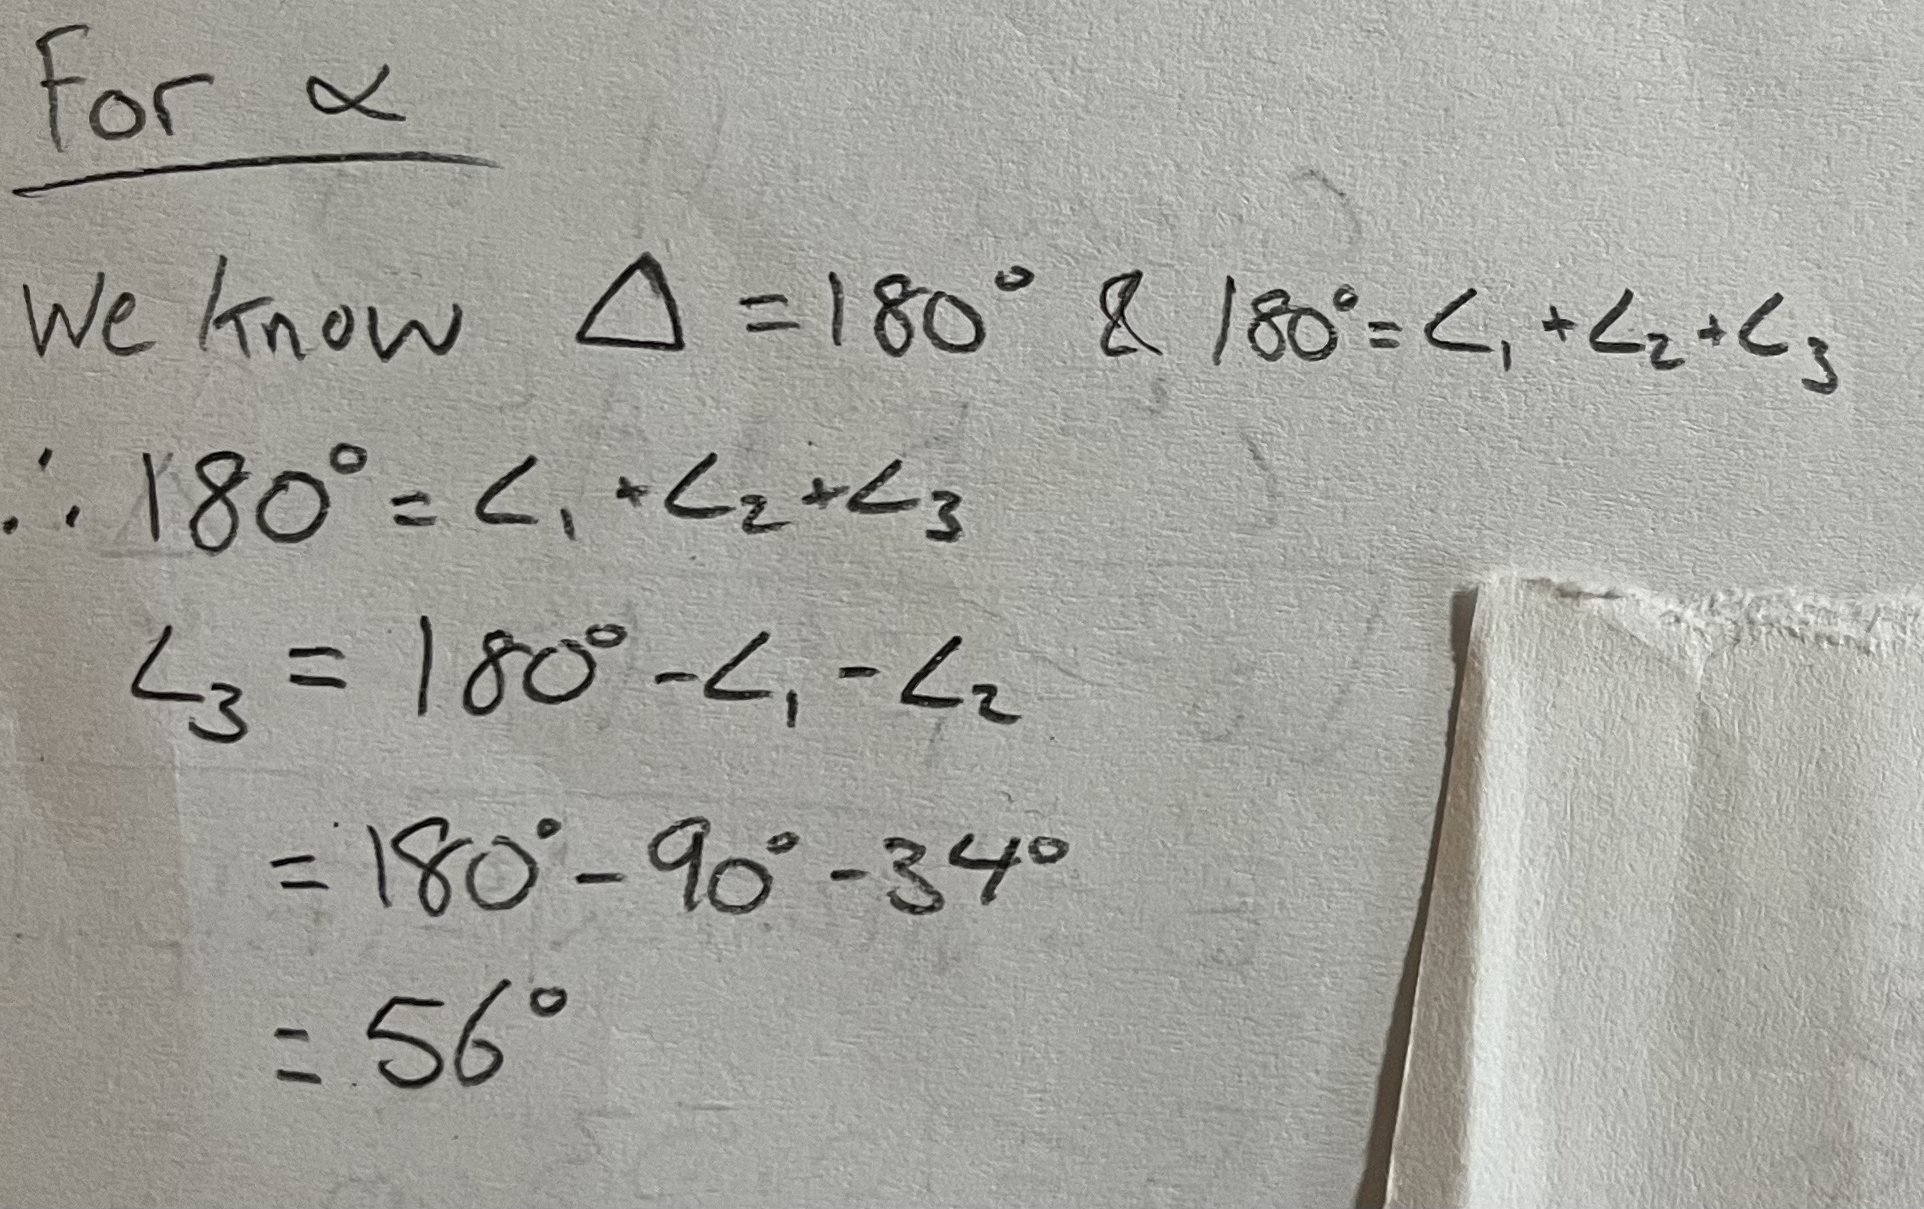 For α
We know △ = 180° & 180° = ∠₁ + ∠₂ + ∠₃
∴ 180° = ∠₁ + ∠₂ + ∠₃
∠₃ = 180° - ∠₁ - ∠₂
= 180° - 90° - 34°
= 56°